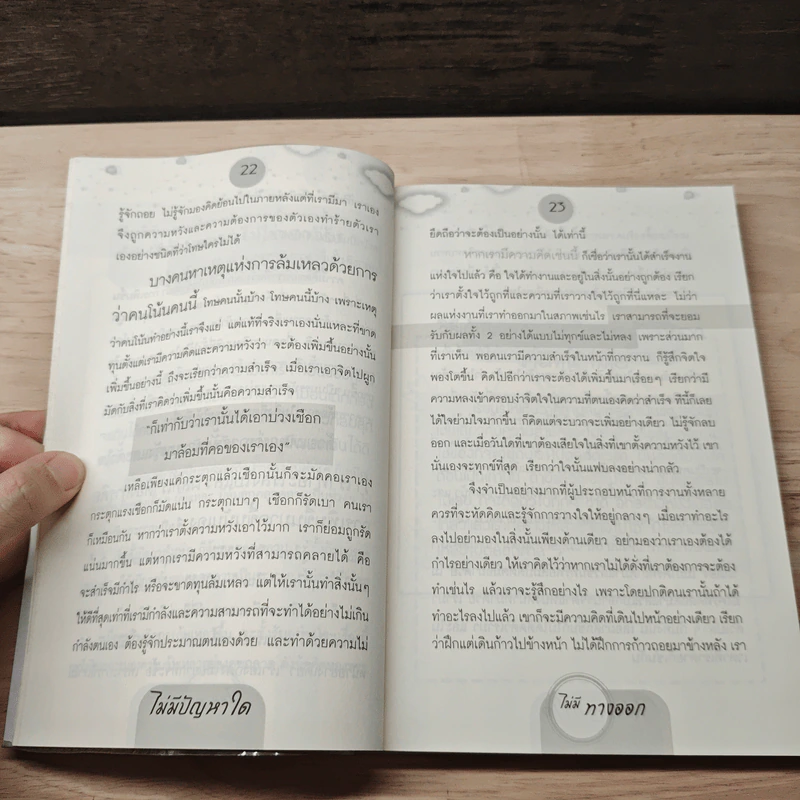 22
รู้จักถอย ไม่รู้จักมองคิดย้อนไปในภายหลังแต่ที่เรามีมา เราเอง
จึงถูกความหวังและความต้องการของตัวเองทำร้ายตัวเรา
เองอย่างชนิดที่ว่าโทษใครไม่ได้
บางคนหาเหตุแห่งการล้มเหลวด้วยการ
ว่าคนโน้นคนนี้ โทษคนนั้นบ้าง โทษคนนี้บ้าง เพราะเหตุ
ว่าคนโน้นทำอย่างนี้เราจึงแย่ แต่แท้ที่จริงเราเองนั่นแหละที่ขาด
ทุนตั้งแต่เรามีความคิดและความหวังว่า จะต้องเพิ่มขึ้นอย่างนั้น
เพิ่มขึ้นอย่างนี้ ถึงจะเรียกว่าความสำเร็จ เมื่อเราเอาจิตไปผูก
มัดกับสิ่งที่เราคิดว่าเพิ่มขึ้นนั้นคือความสำเร็จ
"ก็เท่ากับว่าเรานั้นได้เอาบ่วงเชือก
มาล้อมที่คอของเราเอง"
เหลือเพียงแค่กระตุกแล้วเชือกนั้นก็จะมัดคอเราเอง
กระตุกแรงเชือกก็มัดแน่น กระตุกเบาๆ เชือกก็รัดเบา คนเรา
ก็เหมือนกัน หากว่าเราตั้งความหวังเอาไว้มาก เราก็ย่อมถูกรัด
แน่นมากขึ้น แต่หากเรามีความหวังที่สามารถคลายได้ คือ
จะสำเร็จมีกำไร หรือจะขาดทุนล้มเหลว แต่ให้เรานั้นทำสิ่งนั้นๆ
ให้ดีที่สุดเท่าที่เรามีกำลังและความสามารถที่จะทำได้อย่างไม่เกิน
กำลังตนเอง ต้องรู้จักประมาณตนเองด้วย และทำด้วยความไม่
ไม่มีปัญหาใด
23
ยึดถือว่าจะต้องเป็นอย่างนั้น ได้เท่านี้
หากเรามีความคิดเช่นนี้ ก็เชื่อว่าเรานั้นได้สำเร็จงาน
แห่งใจไปแล้ว คือ ใจได้ทำงานและอยู่ในสิ่งนั้นอย่างถูกต้อง เรียก
ว่าเราตั้งใจไว้ถูกที่และความที่เราวางใจไว้ถูกที่นี่แหละ ไม่ว่า
ผลแห่งงานที่เราทำออกมาในสภาพเช่นไร เราสามารถที่จะยอม
รับกับผลทั้ง 2 อย่างได้แบบไม่ทุกข์และไม่หลง เพราะส่วนมาก
ที่เราเห็น พอคนเรามีความสำเร็จในหน้าที่การงาน ก็รู้สึกจิตใจ
พองโตขึ้น คิดไปอีกว่าเราจะต้องได้เพิ่มขึ้นมาเรื่อยๆ เรียกว่ามี
ความหลงเข้าครอบงำจิตใจในความที่ตนเองคิดว่าสำเร็จ ทีนี้ก็เลย
ได้ใจย่ามใจมากขึ้น ก็คิดแต่จะบวกจะเพิ่มอย่างเดียว ไม่รู้จักลบ
ออก และเมื่อวันใดที่เขาต้องเสียใจในสิ่งที่เขาตั้งความหวังไว้ เขา
นั่นเองจะทุกข์ที่สุด เรียกว่าใจนั้นแฟบลงอย่างน่ากลัว
จึงจำเป็นอย่างมากที่ผู้ประกอบหน้าที่การงานทั้งหลาย
ควรที่จะหัดคิดและรู้จักการวางใจให้อยู่กลางๆ เมื่อเราทำอะไร
ลงไปอย่ามองในสิ่งนั้นเพียงด้านเดียว อย่ามองว่าเราเองต้องได้
กำไรอย่างเดียว ให้เราคิดไว้ว่าหากเราไม่ได้ดั่งที่เราต้องการจะต้อง
ทำเช่นไร แล้วเราจะรู้สึกอย่างไร เพราะโดยปกติคนเรานั้นถ้าได้
ทำอะไรลงไปแล้ว เขาก็จะมีความคิดที่เดินไปหน้าอย่างเดียว เรียก
ว่าฝึกแต่เดินก้าวไปข้างหน้า ไม่ได้ฝึกการก้าวถอยมาข้างหลัง เรา
ไม่มี ทางออก